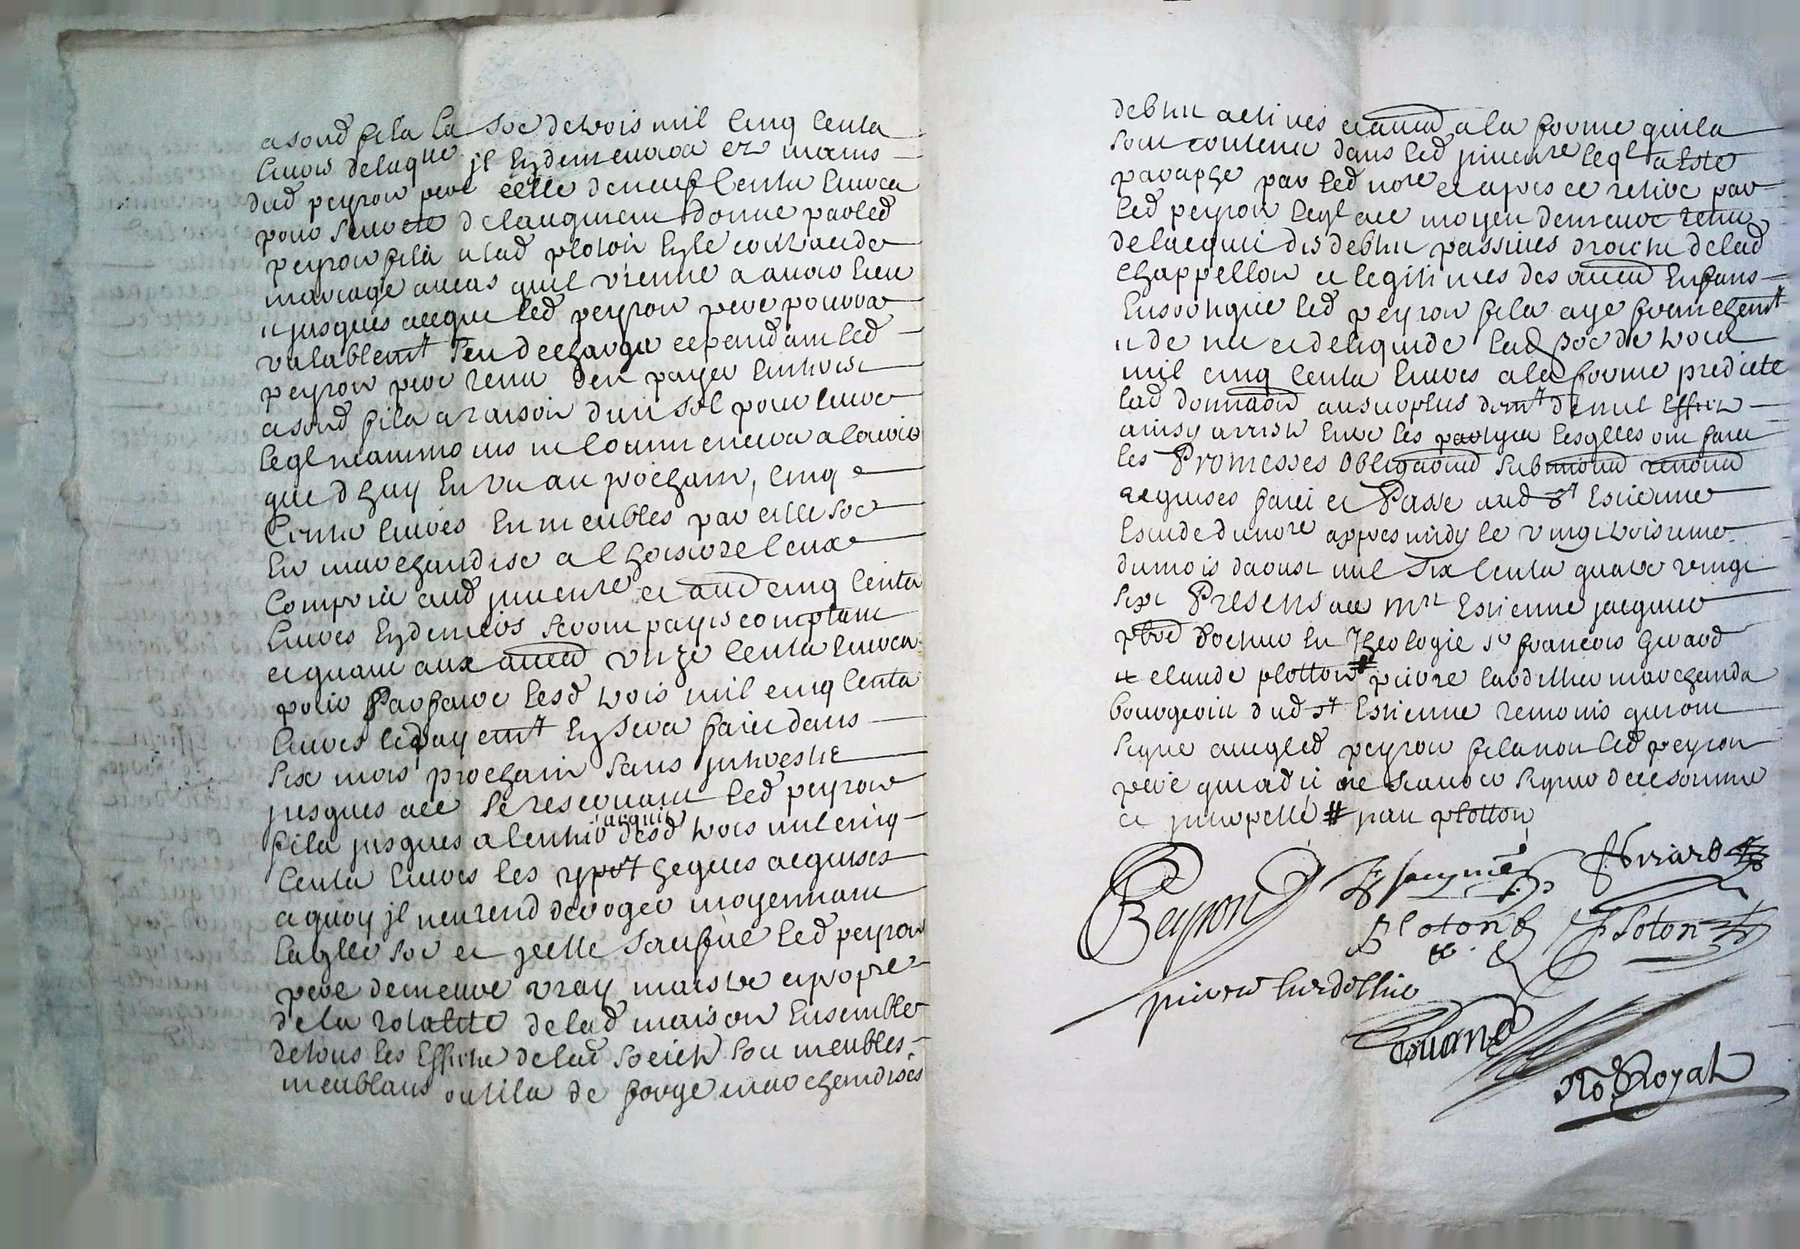 a sond fils la soe de trois mil cinq cents
livres delaque jl en demeurera et moins
dud peyron pere celle de neuf cents livres
pour seurete delaugment donne par led
peyron fils a lad ploton en le contract de
mariage aucas quil vienne a avoir lieu
jusques a ce que led peyron pere pourra
valablemt sen descharger cependant led
peyron pere tenu den payer linterest
a sond fils a raison dun sol pour livre
leql neammoins ne commencera a courir
que dhuy en un an prochain, cinq
cents livres en meubles par elle soe
en marchandise a lhoisir de ceux
compris aud jnventre et aud cinq cents
livres en deniers seront payes comptant
et quant aux autres unze cents livres
pour parfaire lesd trois mil cinq cents
livres le payemt en sera faict dans
six mois prochain sans jnterestz
jusques a ce se reservant led peyron
fils jusques a lentier acquit desd trois mil cinq
cents livres les ypotheques acquises
a quoy jl nentend deroger moyennant
laqlle soe et jcelle soufferte led peyron
pere demeure vray maistre et propre
de la totalite de lad maison ensemble
de tous les effects de lad societe soit meubles
meublans outils de forge marchandises
debtes actives et autres a la forme quils
sont contenu dans led jnventre leql a este
paraphe par led nore et apres ce retire par
led peyron leql a ce moyen demeure tenu
de lacquit des debtes passives droicts de lad
chappellon et legitimes des autres enfans
en sorte que led peyron fils aye franchemt
et de net et deliquide lad soe de trois
mil cinq cents livres a la forme predicte
lad donnaon au surplus demt de nul effect
ainsy arreste entre les partyes lesqlles ont faict
les Promesses obligaons submissions renons
requises faict et Passe aud st Estienne
estude du nore appres midy le vingt troisieme
du mois daoust mil six cents quatre vingt
six Presens a ce mre Estienne jacquier
pbre docteur en theologie sr francois Girard
et claude plotton # pierre lardellier marchands
bourgeois dud st Estienne temoins qui ont
signe avec led peyron fils non led peyron
pere qui a dit ne scavoir signer de ce somme
et jnterpelle # jean plotton
Peyron E Jacquier Girard
Ploton Ploton
pierre lardellier
No Royal